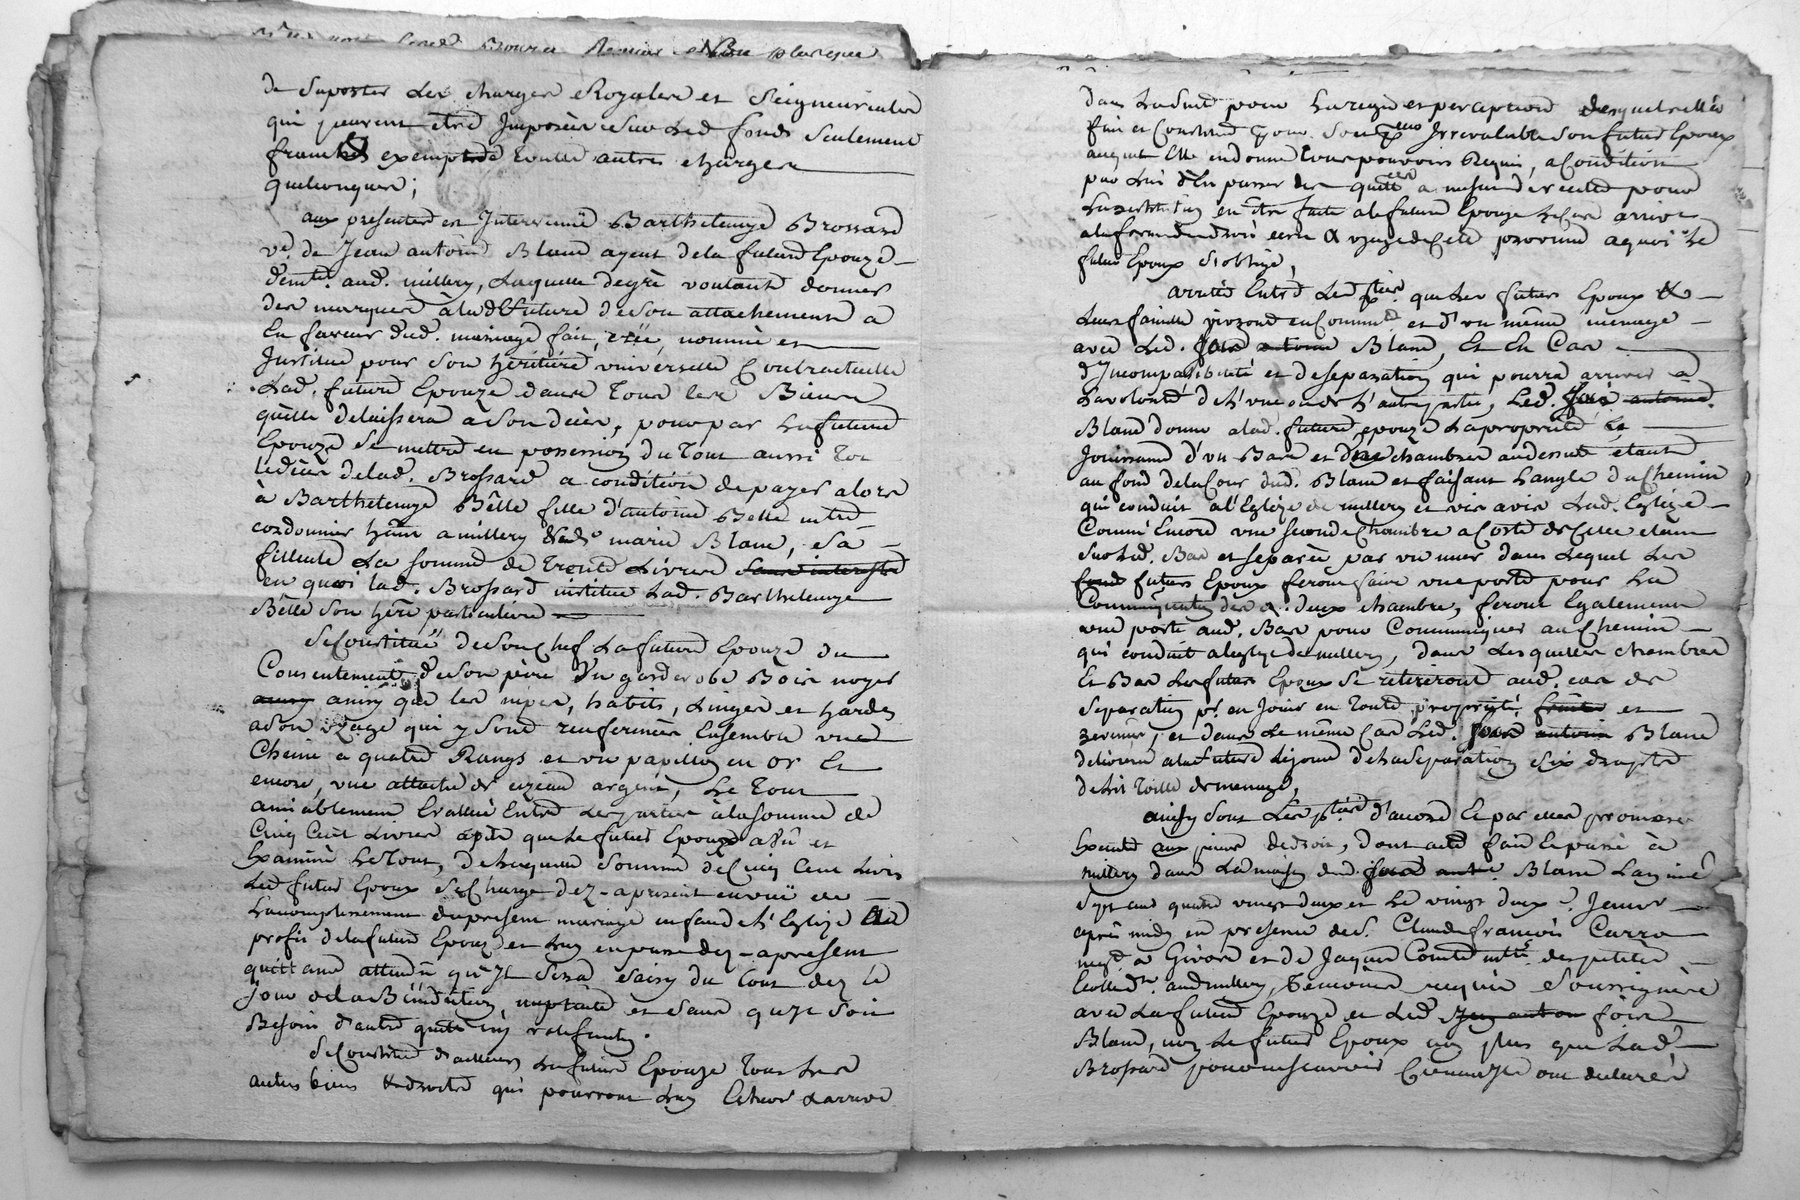 de Suporter Les charges Royales et Seigneuriales
qui peuvent être Imposées Sur Led. fonds Seulement
franches exempte de toutes autres charges
quelconques;
aux presentes est Intervenuë Barthelemye Brossard
ve. de Jean antoine Blanc ayeul de la future Epouze
demte. aud. millery, Laquelle degrè voulant donner
des marques à lad. future de Son attachement a
En faveur dud. mariage fait, créé, nommé et
Institué pour Son héritiére universelle Contractuelle
Lad. future Epouze dans Tous les Biens
qu'elle delaissera à Son décès, pour par La future
Epouze Se mettre en possession du Tout aussi Tot
le décès de lad. Brossard a condition de payer alors
à Barthelemye Bêlle fille d'antoine Belle mtre
cordonnier habt. a millery & de marie Blanc, Sa
filleule La Somme de trente Livres Sans interests
en quoi lad. Brossard institue Lad. Barthelemye
Bêlle Son héré. particulière
Se Constituë de Son Chef La future Epouze du
Consentement de Son père Un garderobe Bois noyer
ainsy que les nipes, habits, Linges et hardes
a Son Uzage qui y Sont renfermées Ensemble une
Cheine a quatre Rangs et un papillon en or Et
encore, une attache de cizeau argent, Le Tout
amiablement Evalué Entre Les parties à la Somme de
Cinq Cent Livres après que Le futur Epoux a Vû et
Examiné Le Tout, de Laquelle Somme de Cinq Cent Livres
Led. futur Epoux Se Charge dez-apresent en vuë de
L'accomplissement du present mariage en face de L'Eglize Au
profit de la future Epouze et Luy en passe dez-apresent
quittance attendu qu'Il Sera Saisy du Tout dez Le
jour de la Bénédiction nuptiale et Sans qu'Il Soit
Besoin d'autre quittance ny
Se Constitue d'ailleurs La future Epouze Tous Les
autres biens & droits qui pourront Luy Echeoir & arriver
dans La Suite pour La regie et perception desquels elle
fait et Constitue pour Son Irrevocable Son futur Epoux
auquel Elle en donne tous pouvoirs Requis, a Condition
par Lui d'En passer des quittces a mesure de recette pour
La restitution en être faite a la future Epouze Le Cas arrivé
a la forme du droit ecrit & uzage de Cette province a quoi Le
futur Epoux S'oblige,
arreté Entre Les pties. que Les futurs Epoux &
Leurs famille vivront en Commun et d'un même ménage
avec Led. antoine Blanc, Et En Cas
d'Incompatibilité et de separation qui pourra arriver a
La volonté de L'une ou de L'autre partie, Led. antoine
Blanc donne a lad. future epouze La propriété Et
Jouissance d'un Bas et d'une chambre au dessus etant
au fond de la Cour dud. Blanc et faisant L'angle du Chemin
qui conduit a l'Eglize de millery et vis avis Lad. Eglize
Comme Encore une Seconde Chambre a Costé de Celle etant
Sur Led. Bas et separée par un mur dans Lequel Les
futurs Epoux feront faire une porte pour La
Communication des d. deux chambres, feront Egalement
une porte aud. Bas pour Communiquer au Chemin
qui conduit a l'eglize de millery, dans Lesquelles chambres
Et Bas Les futurs Epoux Se retireront aud. cas de
Separation pr. en Jouir en toute proprieté, et
, et dans Le même Cas Led. antoine Blanc
délivrera a la future Le jour de La Separation Six draps de
de Lit Toille de menage,
ainsy Sont Les pties. d'accord Et par elles promises
Executé aux peines de droit, dont acte fait Et passé à
millery dans La maison dud. Blanc L'an mil
Sept cent quatre vingt deux et Le vingt deux Janvr
après midy en presence de S. Claude françois Carra
negt. a Givors et de Jaques Comte mtre. des petites
Ecolles dt. aud. millery, Témoins requis Soussignés
avec La future Epouze et Led. antoine
Blanc, non Le futur Epoux ny plus que Lad.
Brossard pour ne Sçavoir ont declarés